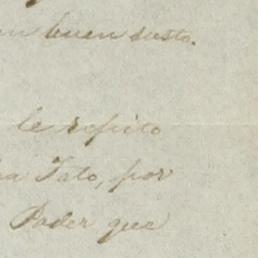 un buen susto.
le repito
Tato, por
Poder que